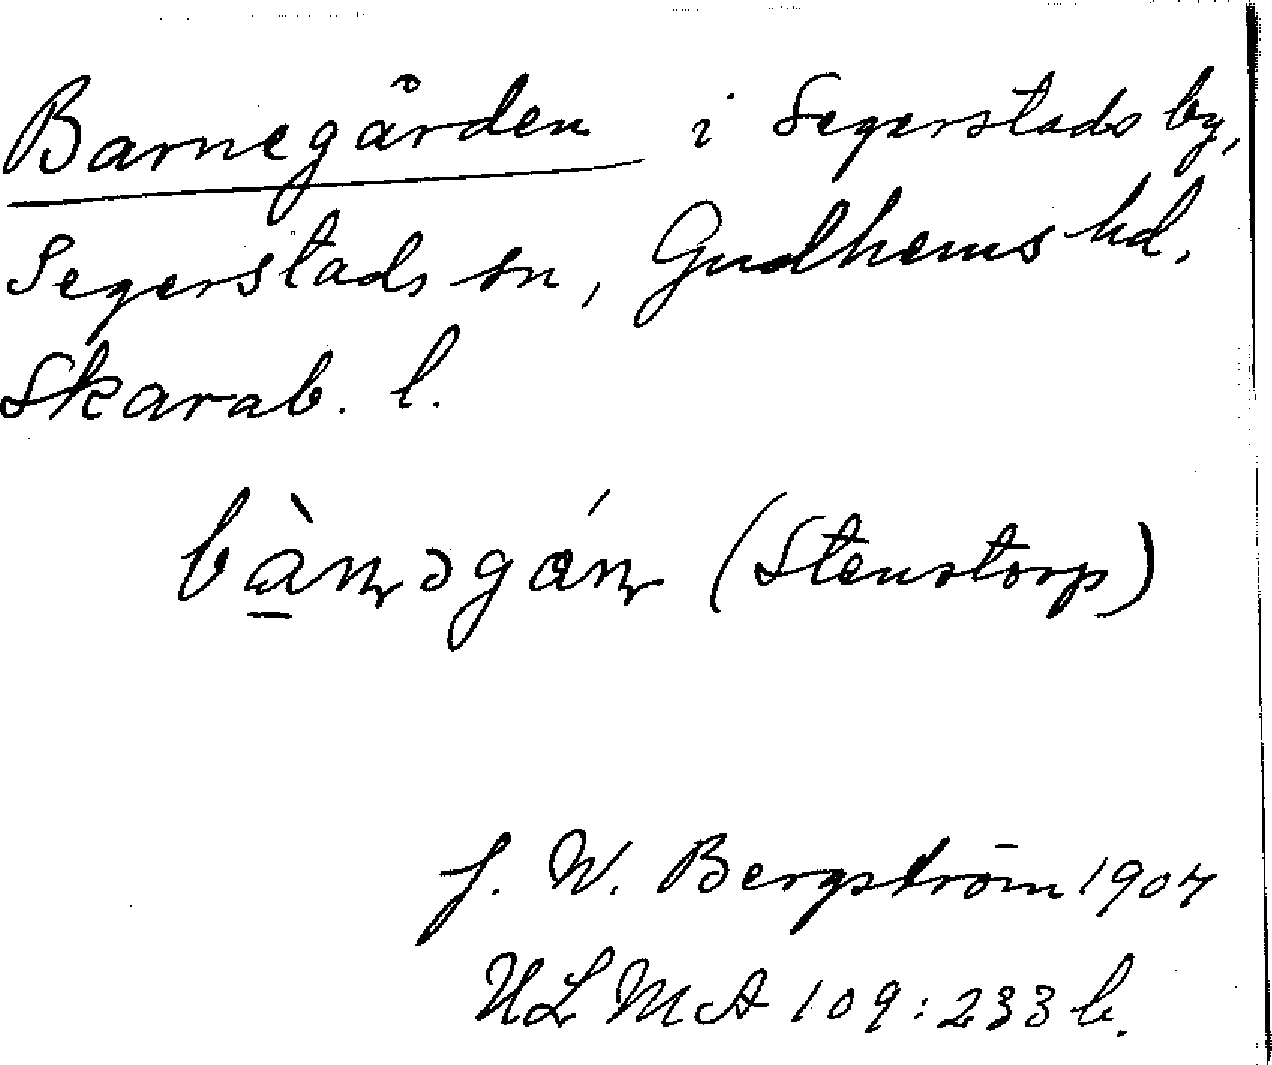 Barnegården i Segerstads by,
Segerstads sn, Gudhems hd.
Skarab. l.
bà̱ɳəgáɳ (Stenstorp)
J. W. Bergström 1904
ULMA 109:233 b.